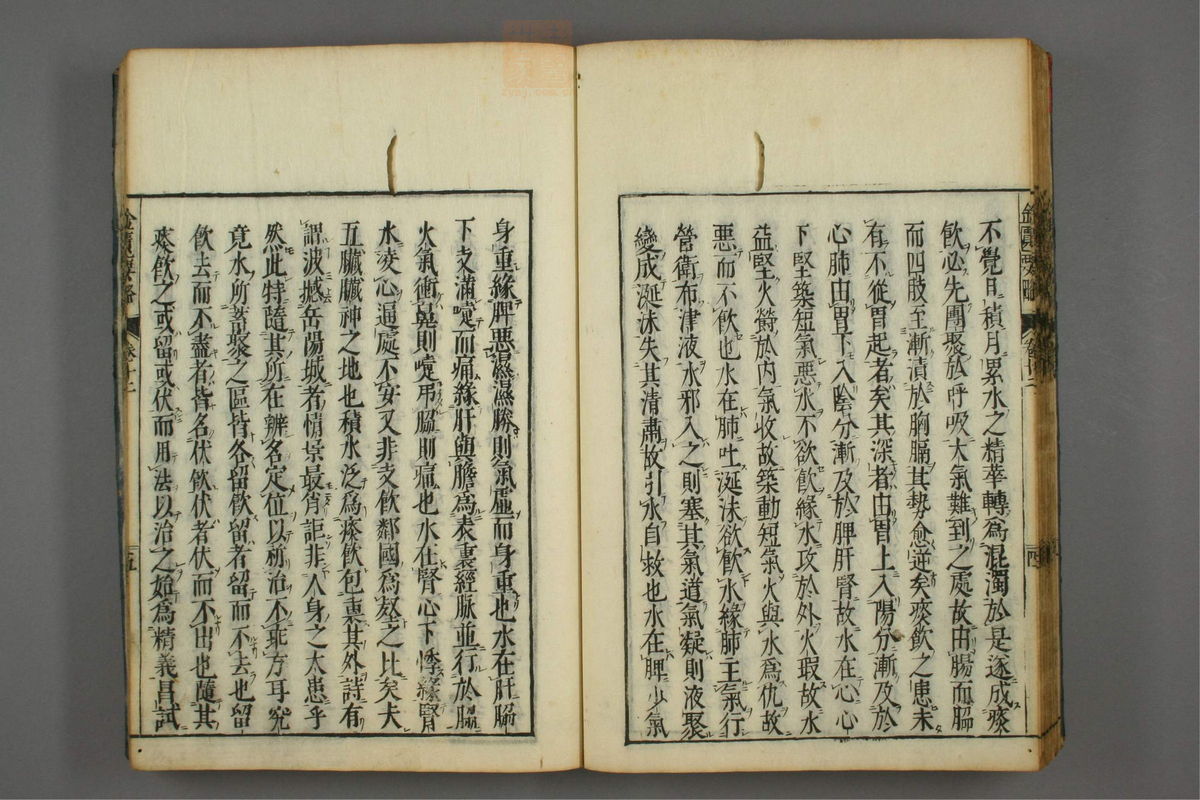 不覺日積月累水之精華轉爲混濁於是遂成痰
飲必先團聚於呼吸大氣難到之處故由腸而脇
而四肢至漸漬於胸膈其勢愈逆矣痰飲之患未
有不從胃起者矣其深者由胃上入陽分漸及於
心肺由胃下入陰分漸及於脾肝腎故水在心心
下堅築短氣惡水不欲飲緣水攻於外火瑕故水
益堅火欎於内氣收故築動短氣火與水爲仇故
惡而不飲也水在肺吐涎沫欲飲水緣肺主氣行
營衛布津液水邪入之則塞其氣道氣凝則液聚
變成涎沫失其清肅故引水自救也水在脾少氣
身重緣脾惡濕濕勝則氣虛而身重也水在肝脇
下支滿嚏而痛緣肝與膽爲表裏經脉並行於脇
火氣衝鼻則嚏吊脇則痛也水在腎心下悸緣腎
水凌心逼處不安又非支飲鄰國爲壑之比矣夫
五臟臟神之地也積水泛爲痰飲包裹其外詩有
謂波撼岳陽城者情景最肖詎非人身之大患乎
然此特隨其所在辨名定位以祈治不乖方耳究
竟水所蓄聚之區皆名留飲留者留而不去也留
飲去而不盡者皆名伏飲伏者伏而不出也隨其
痰飲之或留或伏而用法以治之始爲精義昌試
金匱要略
卷十二
四
金匱要略
卷十二
五